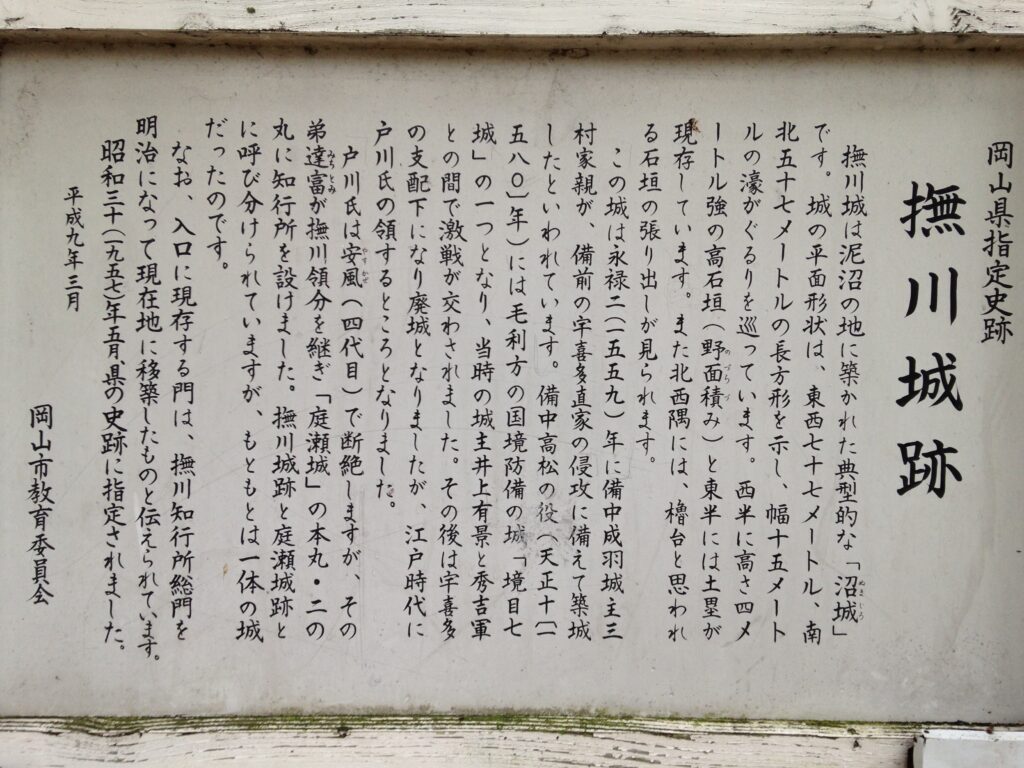 岡山県指定史跡
撫川城跡
撫川城は泥沼の地に築かれた典型的な「沼城」
ぬまじろ
です。城の平面形状は、東西七十七メートル、南
北五十七メートルの長方形を示し、幅十五メート
ルの濠がぐるりを巡っています。西半に高さ四メ
ートル強の高石垣(野面積み)と東半には土塁が
のづらづ
現存しています。また北西隅には、櫓台と思われ
る石垣の張り出しが見られます。
この城は永禄二(一五五九)年に備中成羽城主三
村家親が、備前の宇喜多直家の侵攻に備えて築城
したといわれています。備中高松の役(天正十(一
五八〇)年)には毛利方の国境防備の城「境目七
城」の一つとなり、当時の城主井上有景と秀吉軍
との間で激戦が交わされました。その後は宇喜多
の支配下になり廃城となりましたが、江戸時代に
戸川氏の領するところとなりました。
戸川氏は安風(四代目)で断絶しますが、その
やすかぜ
弟達富が撫川領分を継ぎ「庭瀬城」の本丸・二の
みちとみ
丸に知行所を設けました。撫川城跡と庭瀬城跡と
に呼び分けられていますが、もともとは一体の城
だったのです。
なお、入口に現存する門は、撫川知行所総門を
明治になって現在地に移築したものと伝えられています。
昭和三十(一九五七)年五月、県の史跡に指定されました。
平成九年三月
岡山市教育委員会